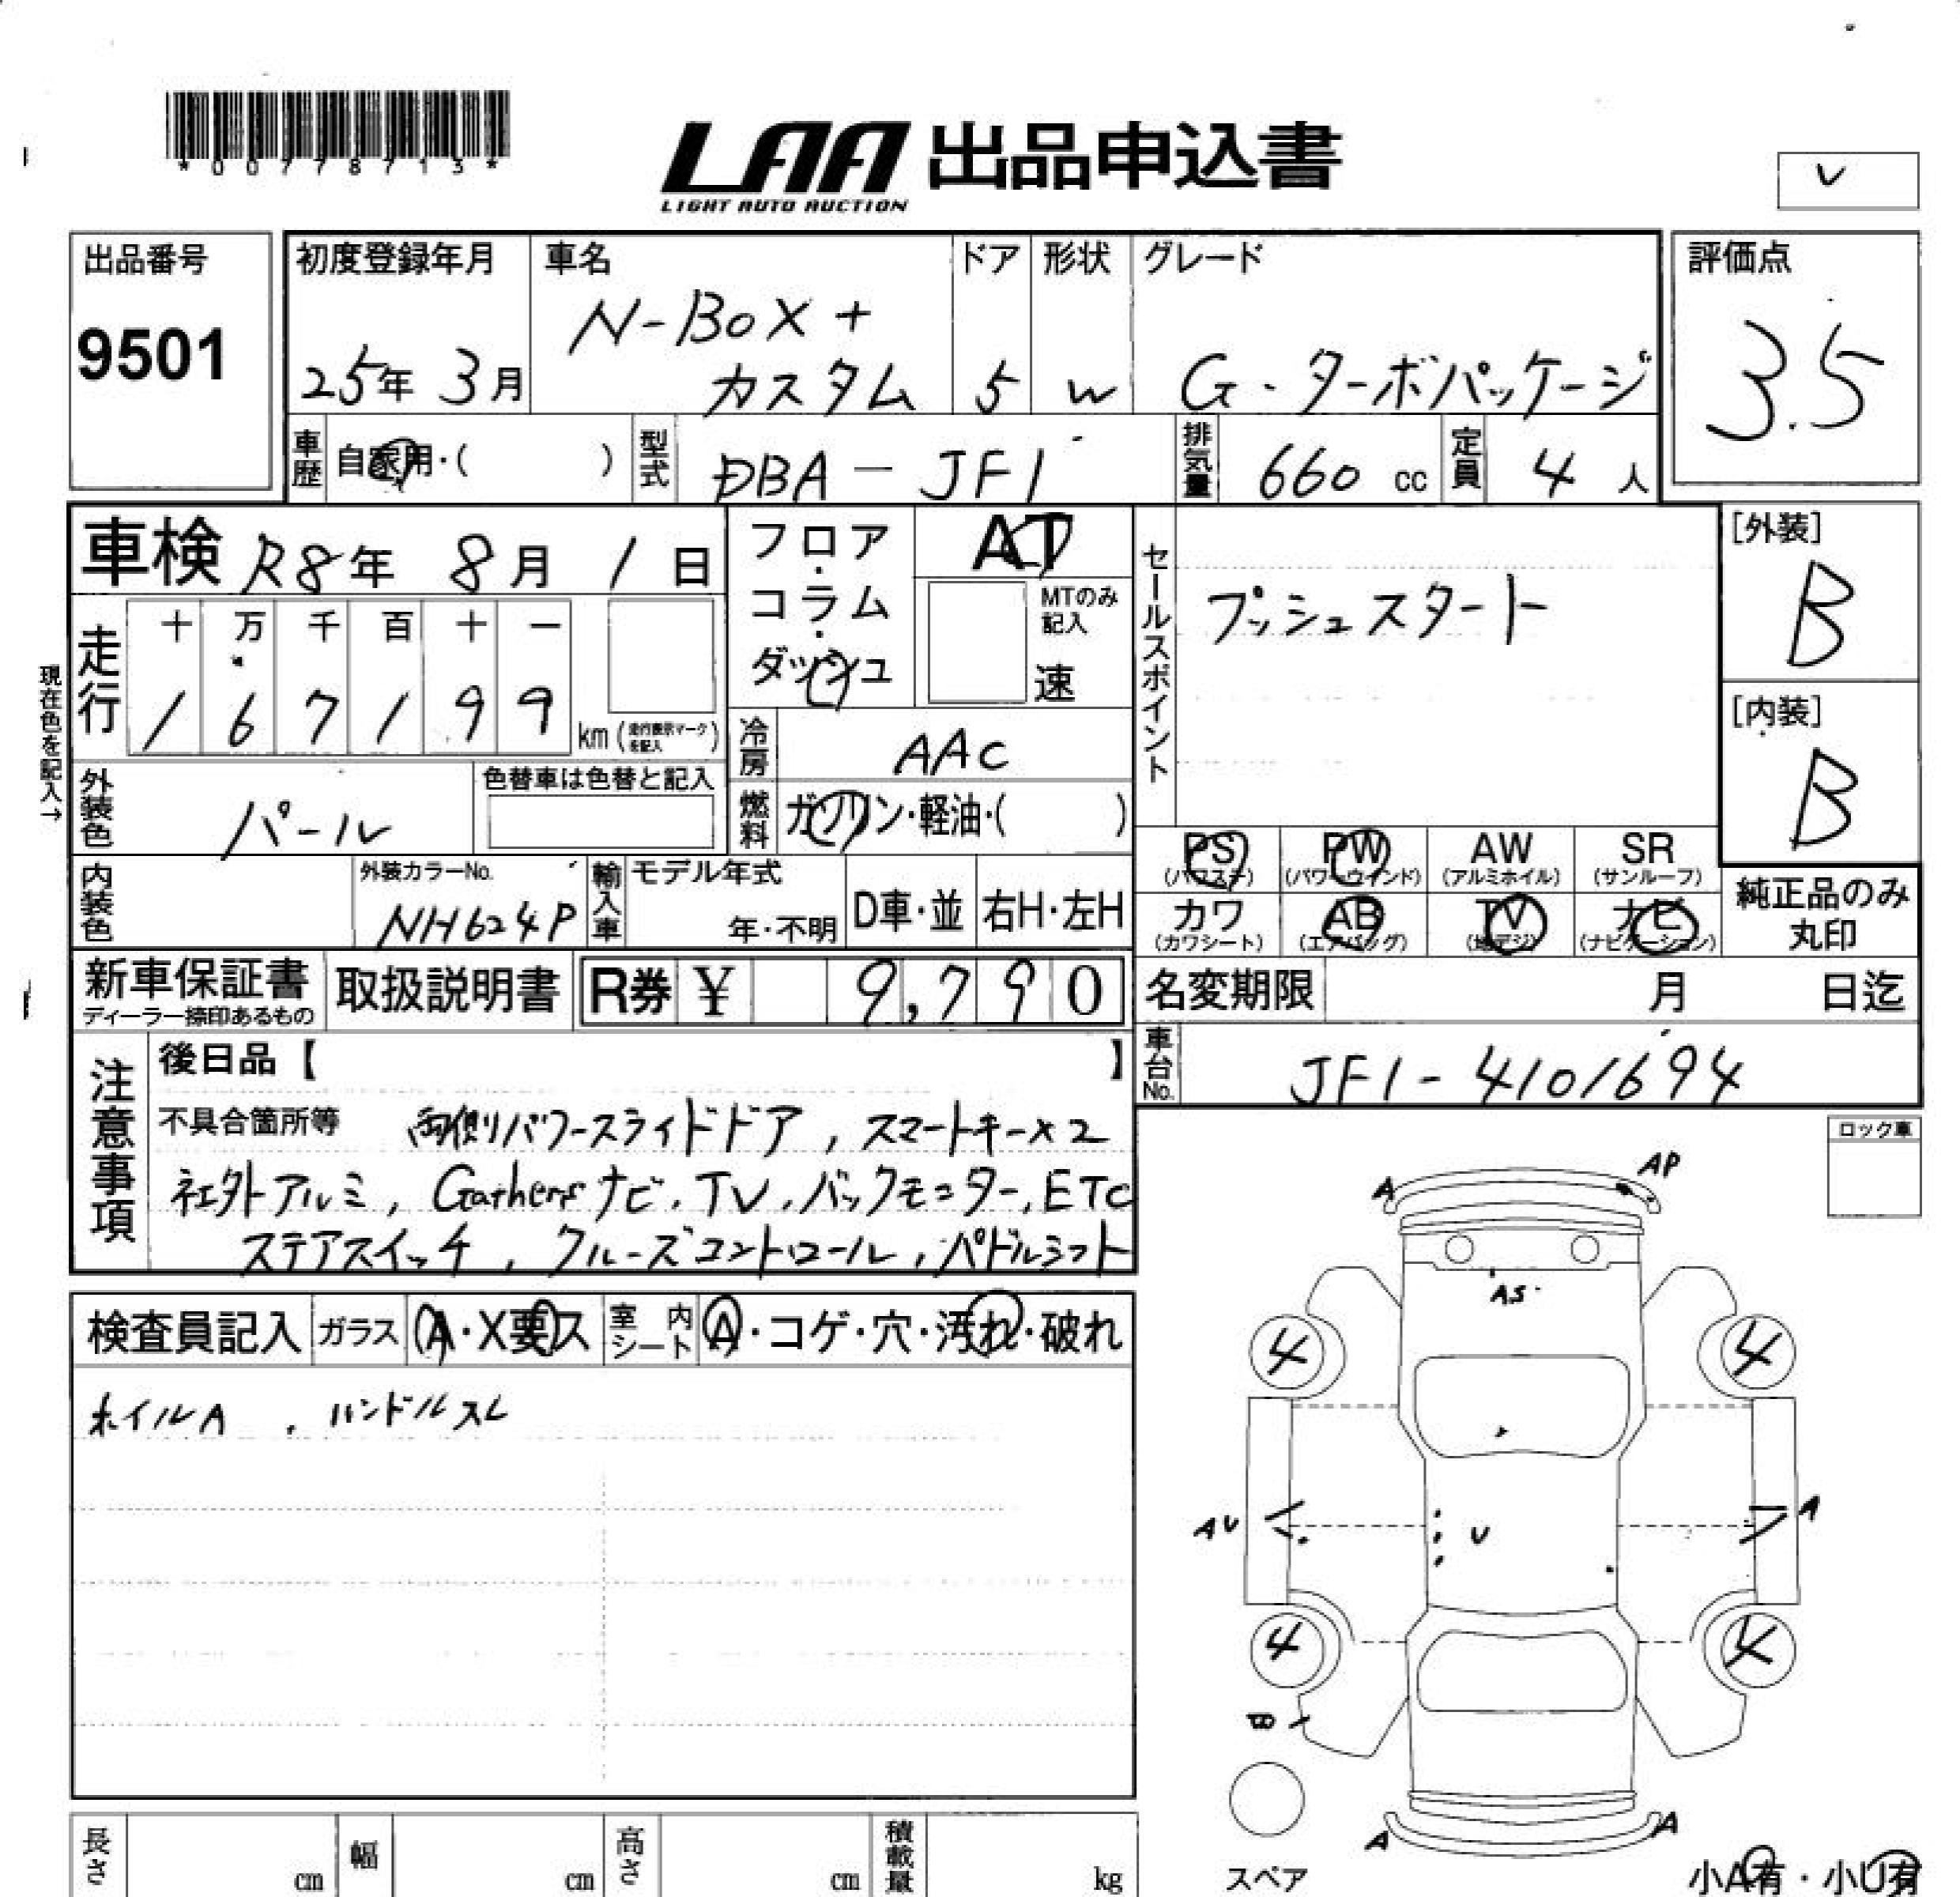 *00778713*
LAA 出品申込書
LIGHT AUTO AUCTION
V
出品番号
9501
初度登録年月
25年 3月
車名
N-BOX+
カスタム
ドア
5
形状
W
グレード
G・ターボパッケージ
評価点
3.5
車歴
自家用・( )
型式
DBA-JF1
排気量
660 cc
定員
4 人
車検 R8年 8月 1日
フロア・コラム・ダッシュ
AT
MTのみ記入
速
セールスポイント
プッシュスタート
[外装]
B
[内装]
B
現在色を記入→
走行
十 万 千 百 十 一
1 6 7 1 9 9
km(走行表示マークを記入)
冷房
AAC
燃料
ガソリン・軽油・( )
外装色
パール
色替車は色替と記入
内装色
外装カラーNo.
NH624P
輸入車
モデル年式
年・不明
D車・並
右H・左H
PS
(パワステ)
PW
(パワーウインド)
AW
(アルミホイル)
SR
(サンルーフ)
カワ
(カワシート)
AB
(エアバッグ)
TV
(地デジ)
ナビ
(ナビゲーション)
純正品のみ
丸印
新車保証書
ディーラー捺印あるもの
取扱説明書
R券 ¥ 9,790
名変期限 月 日迄
車台No.
JF1-4101694
注意事項
後日品【 】
不具合箇所等 両側パワースライドドア, スマートキー×2
社外アルミ, Gathersナビ, TV, バックモニター, ETC
ステアスイッチ, クルーズコントロール, パドルシフト
ロック車
検査員記入
ガラス
A・X要ス
室内シート
A・コゲ・穴・汚れ・破れ
ホイルA . ハンドルスレ
A
AP
AS
4
4
AU
U
A
4
4
B
A
A
スペア
小A有・小U有
長さ cm
幅 cm
高さ cm
積載量 kg